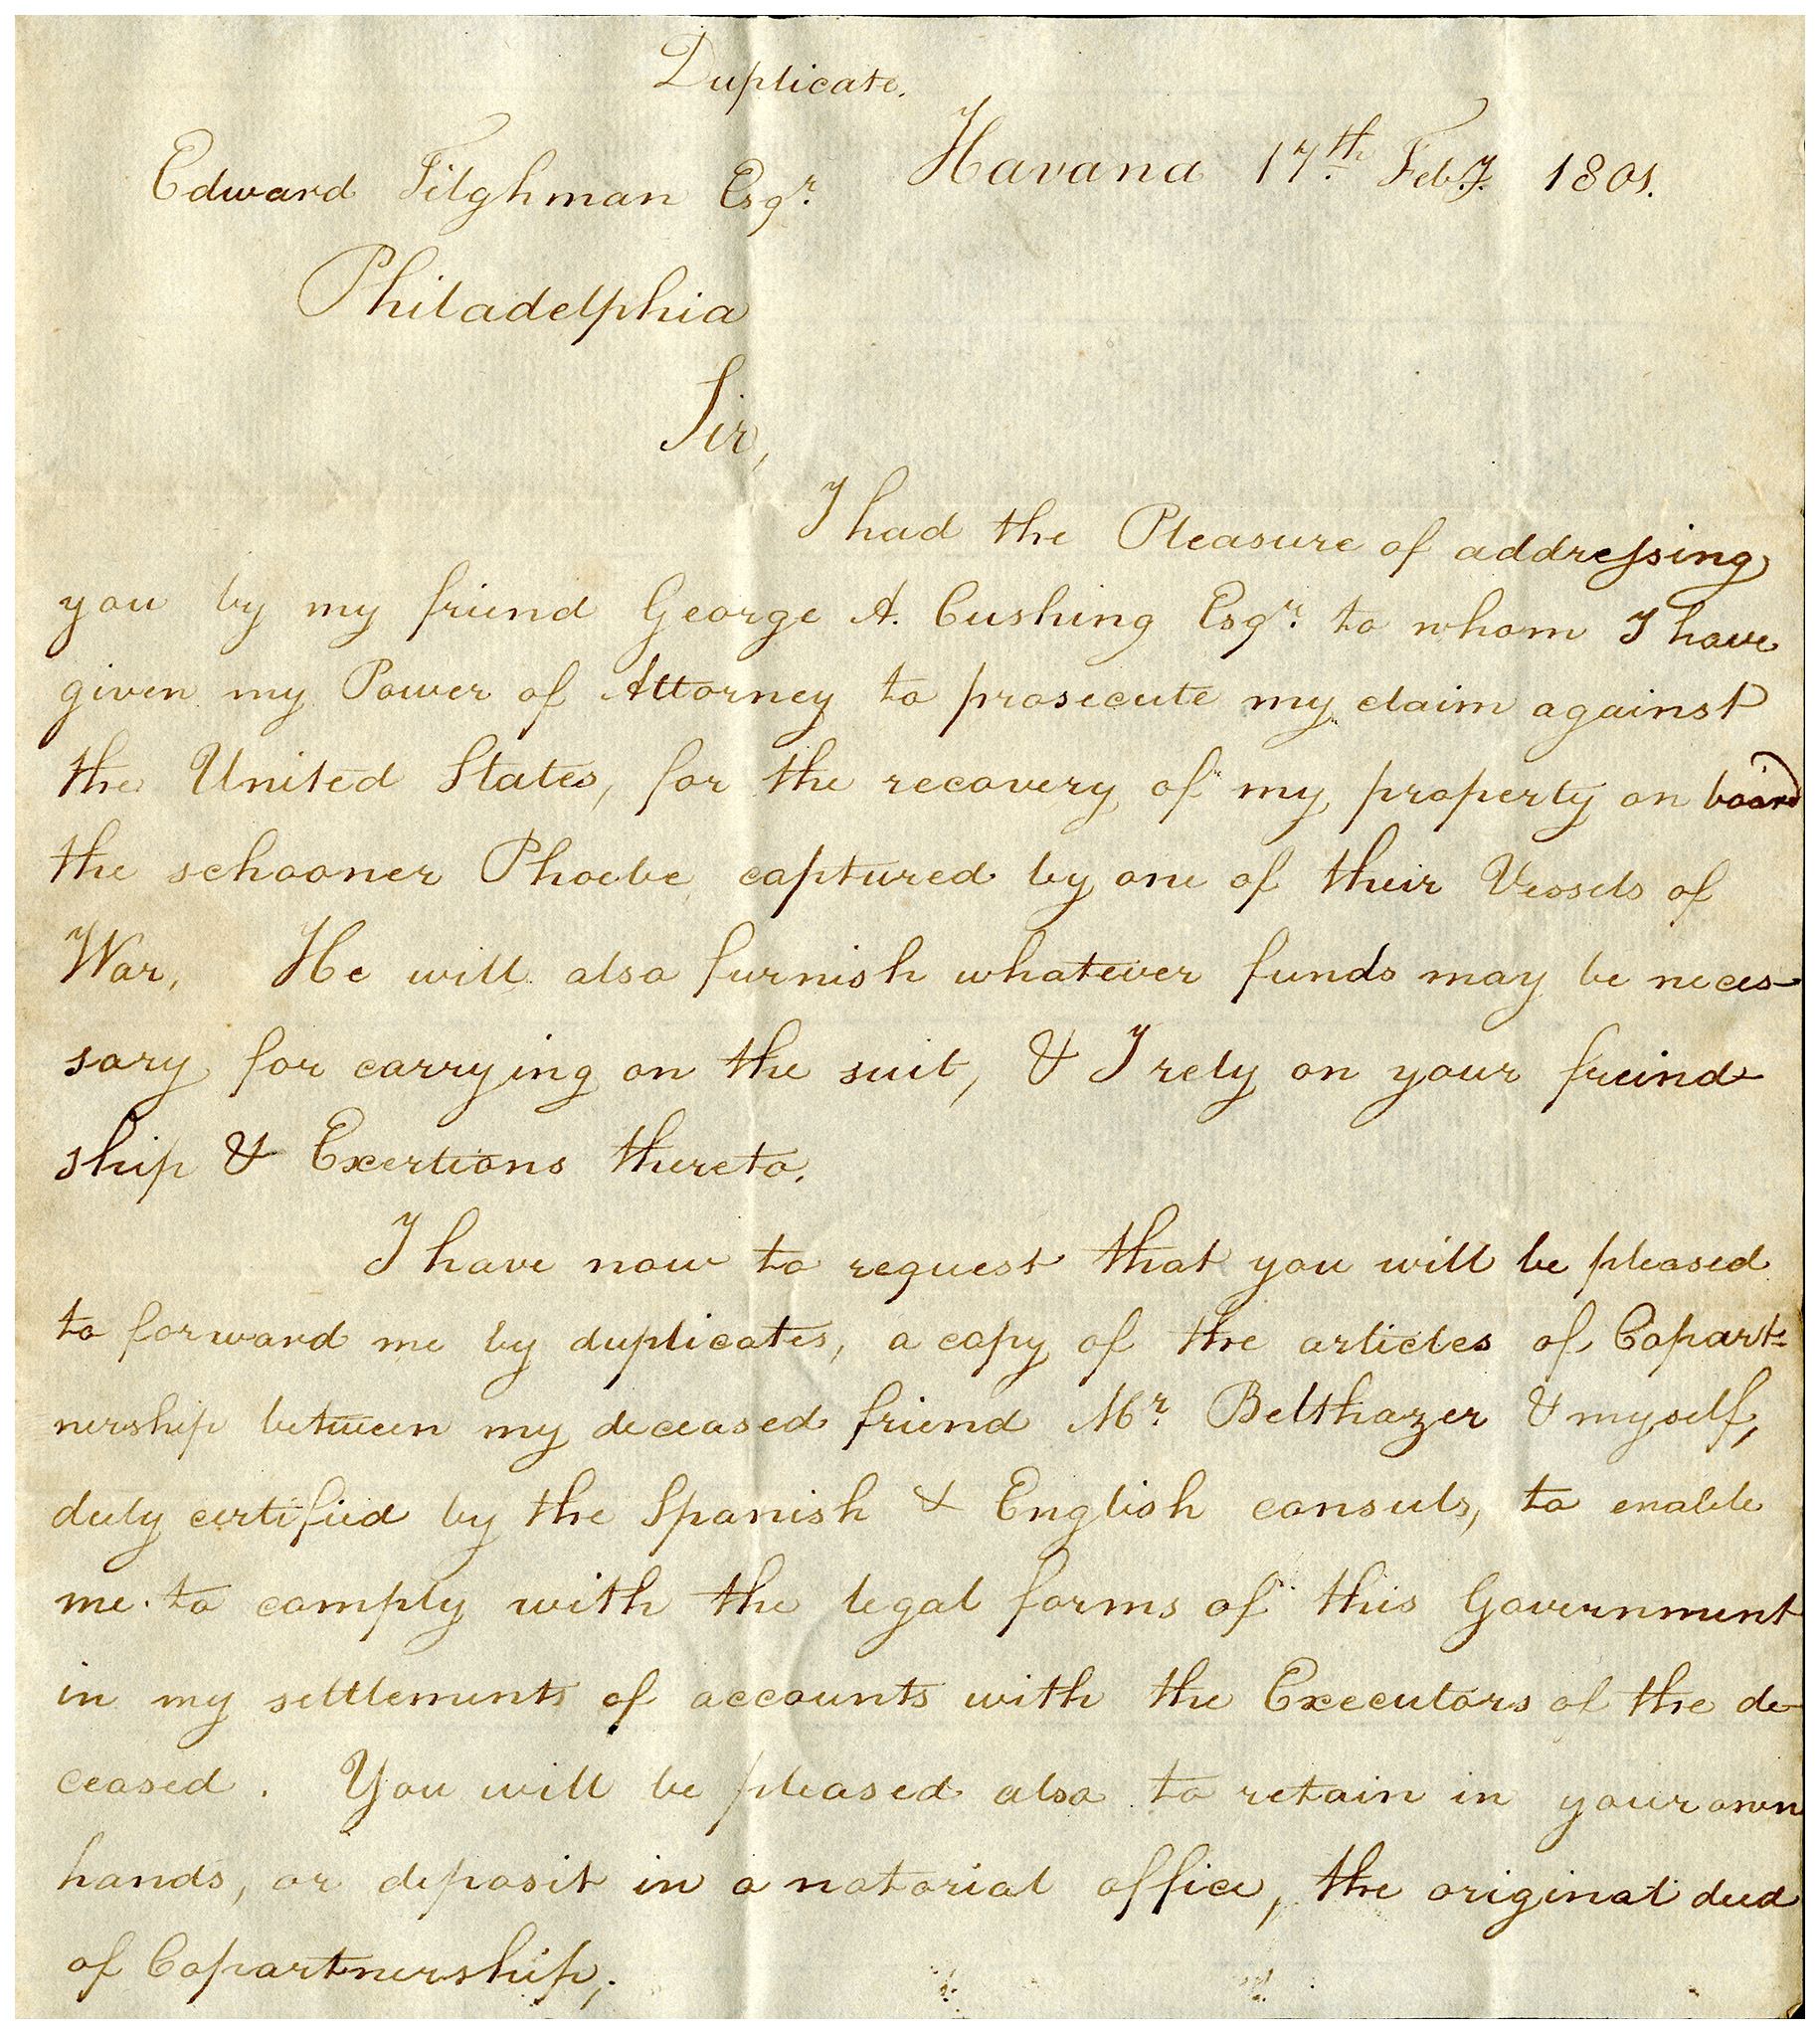 Duplicate.
Havana 17th Feby. 1801.
Edward Tilghman Esqr.
Philadelphia
Sir,
I had the Pleasure of addressing
you by my friend George A. Cushing Esqr. to whom I have
given my Power of Attorney to prosecute my claim against
the United States, for the recovery of my property on board
the schooner Phoebe captured by one of their Vessels of
War. He will also furnish whatever funds may be neces-
sary for carrying on the suit, & I rely on your freind-
ship & Exertions thereto.
I have now to request that you will be pleased
to forward me by duplicates, a copy of the articles of Copart-
nership between my deceased friend Mr. Belthazer & myself,
duly certified by the Spanish & English consuls, to enable
me to comply with the legal forms of this Government
in my settlements of accounts with the Executors of the de-
ceased. You will be pleased also to retain in your own
hands, or deposit in a notorial office, the original deed
of Copartnership;